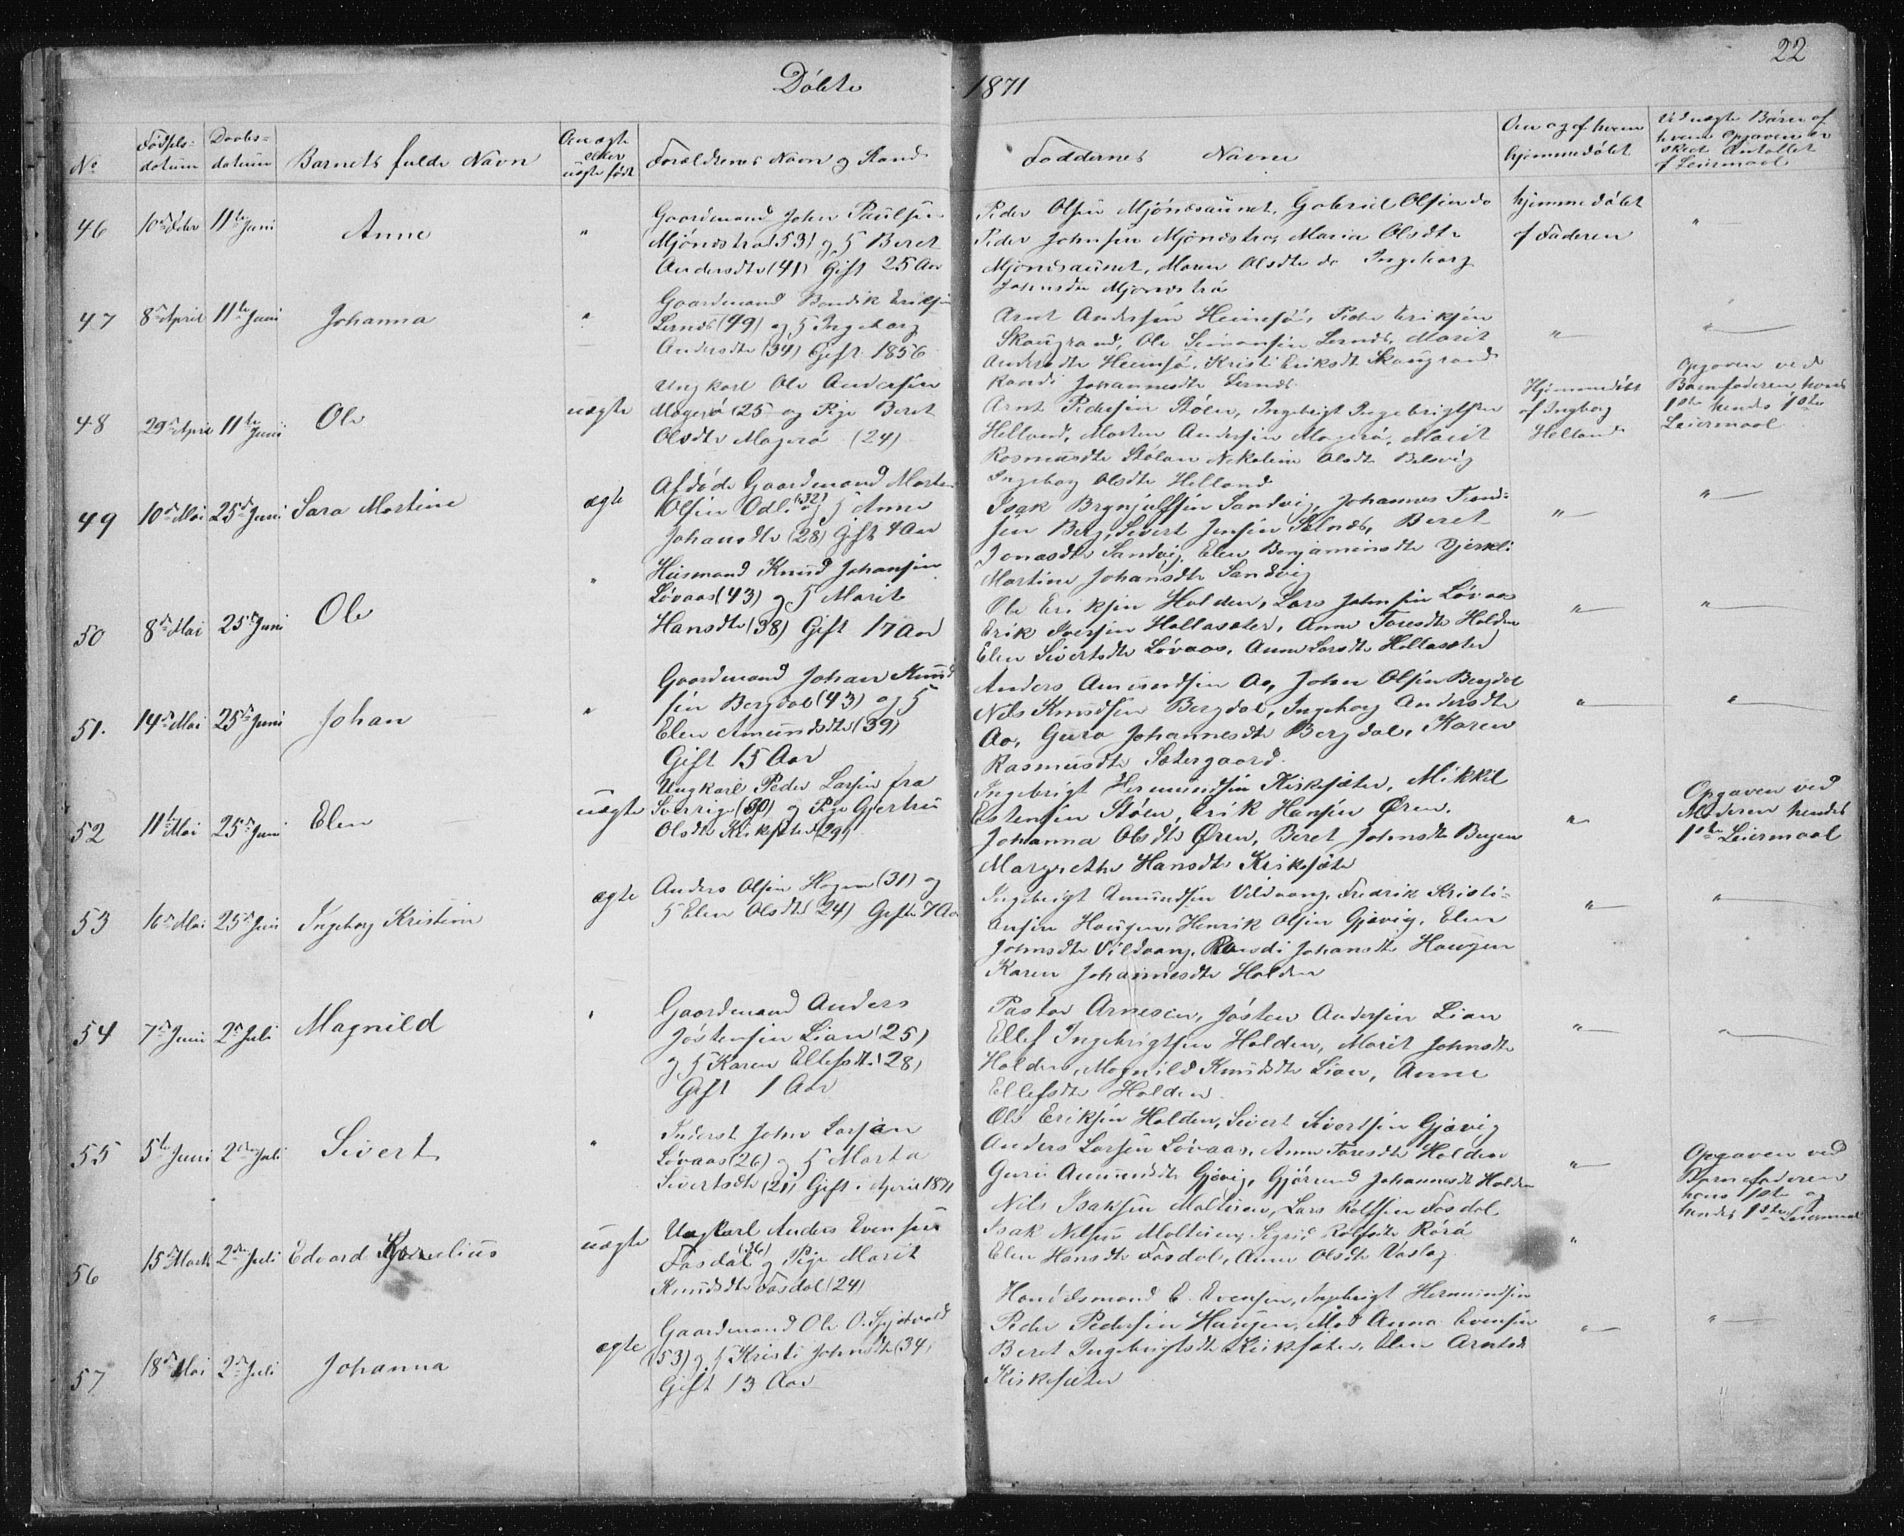 22
Døbte 1871
No
Fødsels-
datum
Daabs-
datum
Barnets fulde Navn
Om ægte
eller
uægte født
Forældrenes Navn og Stand
Faddernes Navne
Om og af hvem
hjemmedøbt
Ved uægte Børn af
hvem Opgaven er
skeet Antallet
af Leiermaal
46 10de Febr 11te Juni Anne "
Gaardmand John Paulsen
Mjønestra (53) og H Beret
Andersdtr (41) Gift 25 Aar
Peder Olsen Mjønesaunet, Gabriel Olsen do
Peder Johnsen Mjønestra, Maria Olsdtr
Mjønesaunet, Maren Olsdtr do Ingeborg
Johnsdtr Mjønestra
hjemmedøbt
af Faderen
"
47 8de April 11te Juni Johanna "
Gaardmand Bendik Eriksen
Lernes (49) og H Ingeborg
Andersdtr (34) Gift 1856
Arnt Andersen Heimsø, Peder Eriksen
Skougrand, Ole Simonsen Lernes, Marit
Andersdtr Heimsø, Kristi Eriksdt Skougrand
Randi Johannesdtr Lernes
"
"
48 29de April 11te Juni Ole uægte
Ungkarl Ole Andersen
Magerø (25 og Pige Beret
Olsdtr Magerø (24)
Arnt Pedersen Stølen, Ingebrigt Ingebrigtsen
Helland, Morten Andersen Magerø, Marit
Rasmusdtr Stølan Nekoline Olsdt Belsvig
Ingeborg Olsdtr Helland
Hjemmedøbt
af Ingborg
Helland
Opgaven ved
Barnefaderen hans
1ste hendes 1ste
Leiermaal
49 10de Mai 25de Juni Sara Martine ægte
Afdøde Gaardmand Morten
Olsen Odli (32) og H Anne
Johansdtr (28) Gift 4 Aar
Isak Brynjulfsen Sandvig, Johannes
sen Berg, Sivert Jensen Selnes, Beret
Jonasdtr Sandvig Elen Benjaminsdtr
Martine Johansdtr Sandvig
"
"
50 8de Mai 25de Juni Ole "
Huusmand Knud Johansen
Løvaas (43) og H Marit
Hansdtr (38) Gift 17 Aar
Ole Eriksen Holden, Lars Johnsen Løvaas
Erik Iversen Hollasæter, Anne Toresdtr Holden
Elen Sivertsdtr Løvaas, Anne Larsdtr Hollasæter
"
"
51. 14de Mai 25de Juni Johan "
Gaardmand Johan Knud
sen Bergdal (43) og H
Elen Amundsdtr (39)
Gift 15 Aar
Anders Amundsen Aa, John Olsen Bergdal
Nils Knudsen Bergdal, Ingeborg Andersdtr
Aa, Guro Johannesdtr Bergdal, Karen
Rasmusdtr Sætergaard
"
"
52 11te Mai 25de Juni Elen uægte
Ungkarl Peder Larsen fra
Sverrige (30) og Pige Gjertru
Olsdtr Kirksæter (29)
Ingebrigt Hermundsen Kirksæter, Mikkel
Estensen Støen, Erik Hansen Øren,
Johanna Olsdtr Øren, Beret Johnsdtr Bugen
Margrethe Hansdtr Kirksæter
"
Opgaven ved
Moderen hendes
1ste Leiermaal
53 16de Mai 25de Juni Ingeborg Kristine ægte
Anders Olsen Hagen (31) og
H Elen Olsdtr (24) Gift 7 Aar
Ingebrigt Amundsen Vildvang, Fredrik Kristi-
ansen Haugen, Henrik Olsen Gjøvig, Elen
Johnsdtr Vildvang, Randi Johansdtr Haugen
Karen Johannesdtr Holden
"
"
54 7de Juni 2den Juli Magnild "
Gaardmand Anders
Jøstensen Lian (25)
og H Karen Ellefsdtr (28)
Gift 1 Aar
Pastor Arnesen, Jøsten Andersen Lian
Ellef Ingebrigtsen Holden, Marit Johnsdtr
Holden, Magnild Knudsdtr Lian, Anne
Ellefsdtr Holden
"
"
55 5te Juni 2den Juli Sivert "
Inderst John Larsen
Løvaas (26) og H Marta
Sivertsdtr (21) Gift i April 1871
Ole Eriksen Holden, Sivert Sivertsen Gjøvig
Anders Larsen Løvaas, Anne Toresdtr Holden
Guru Amundsdtr Gjøvig, Gjørrund Johannesdt Holden
"
56 15de Marts 2den Juli Edvard Kornelius uægte
Ungkarl Anders Evensen
Fosdal (36) og Pige Marit
Knudsdtr Fosdal (24)
Nils Isaksen Moltuen, Lars Rolfsen Fosdal
Isak Nilsen Moltuen, Sigrid Rolfsdtr Rørø
Elen Hansdtr Fosdal, Anne Olsdtr Vaslag
"
Opgaven ved
Barnefaderen
hans 1ste og
hendes 1ste Leiermaal
57 18de Mai 2den Juli Johanna ægte
Gaardmand Ole O. Spjøtvold
(53) og H Kristi Johnsdtr (34)
Gift 13 Aar
Handelsmand E. Evensen, Ingebrigt Hermundsen
Peder Pedersen Haugen, Mad Anna Evensen
Beret Ingebrigtsdtr Kirksæter, Elen Arntsdt
Kirksæter
"
"